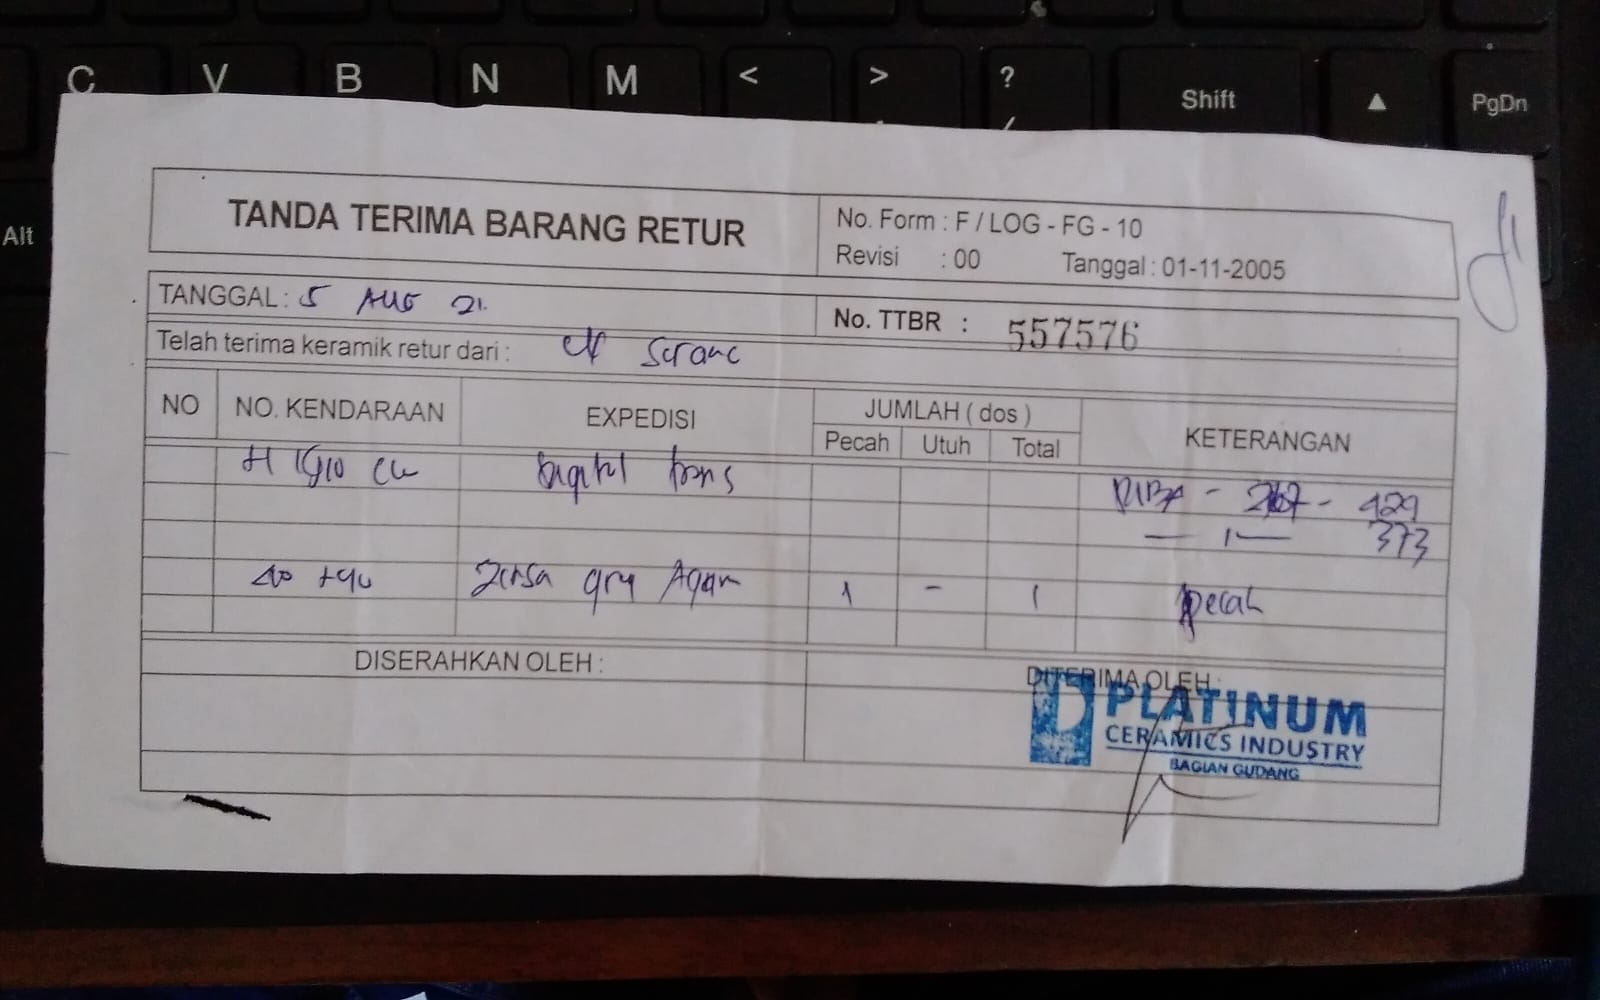 C V B N M < > ? / Shift ▲ PgDn
Alt
TANDA TERIMA BARANG RETUR
No. Form : F / LOG - FG - 10
Revisi : 00 Tanggal : 01-11-2005
TANGGAL : 5 AUG 21.
No. TTBR : 557576
Telah terima keramik retur dari :
NO NO. KENDARAAN EXPEDISI JUMLAH ( dos ) KETERANGAN
Pecah Utuh Total
Digital trans
429
373
1 - 1 pecah
DISERAHKAN OLEH :
DITERIMA OLEH :
PLATINUM
CERAMICS INDUSTRY
BAGIAN GUDANG